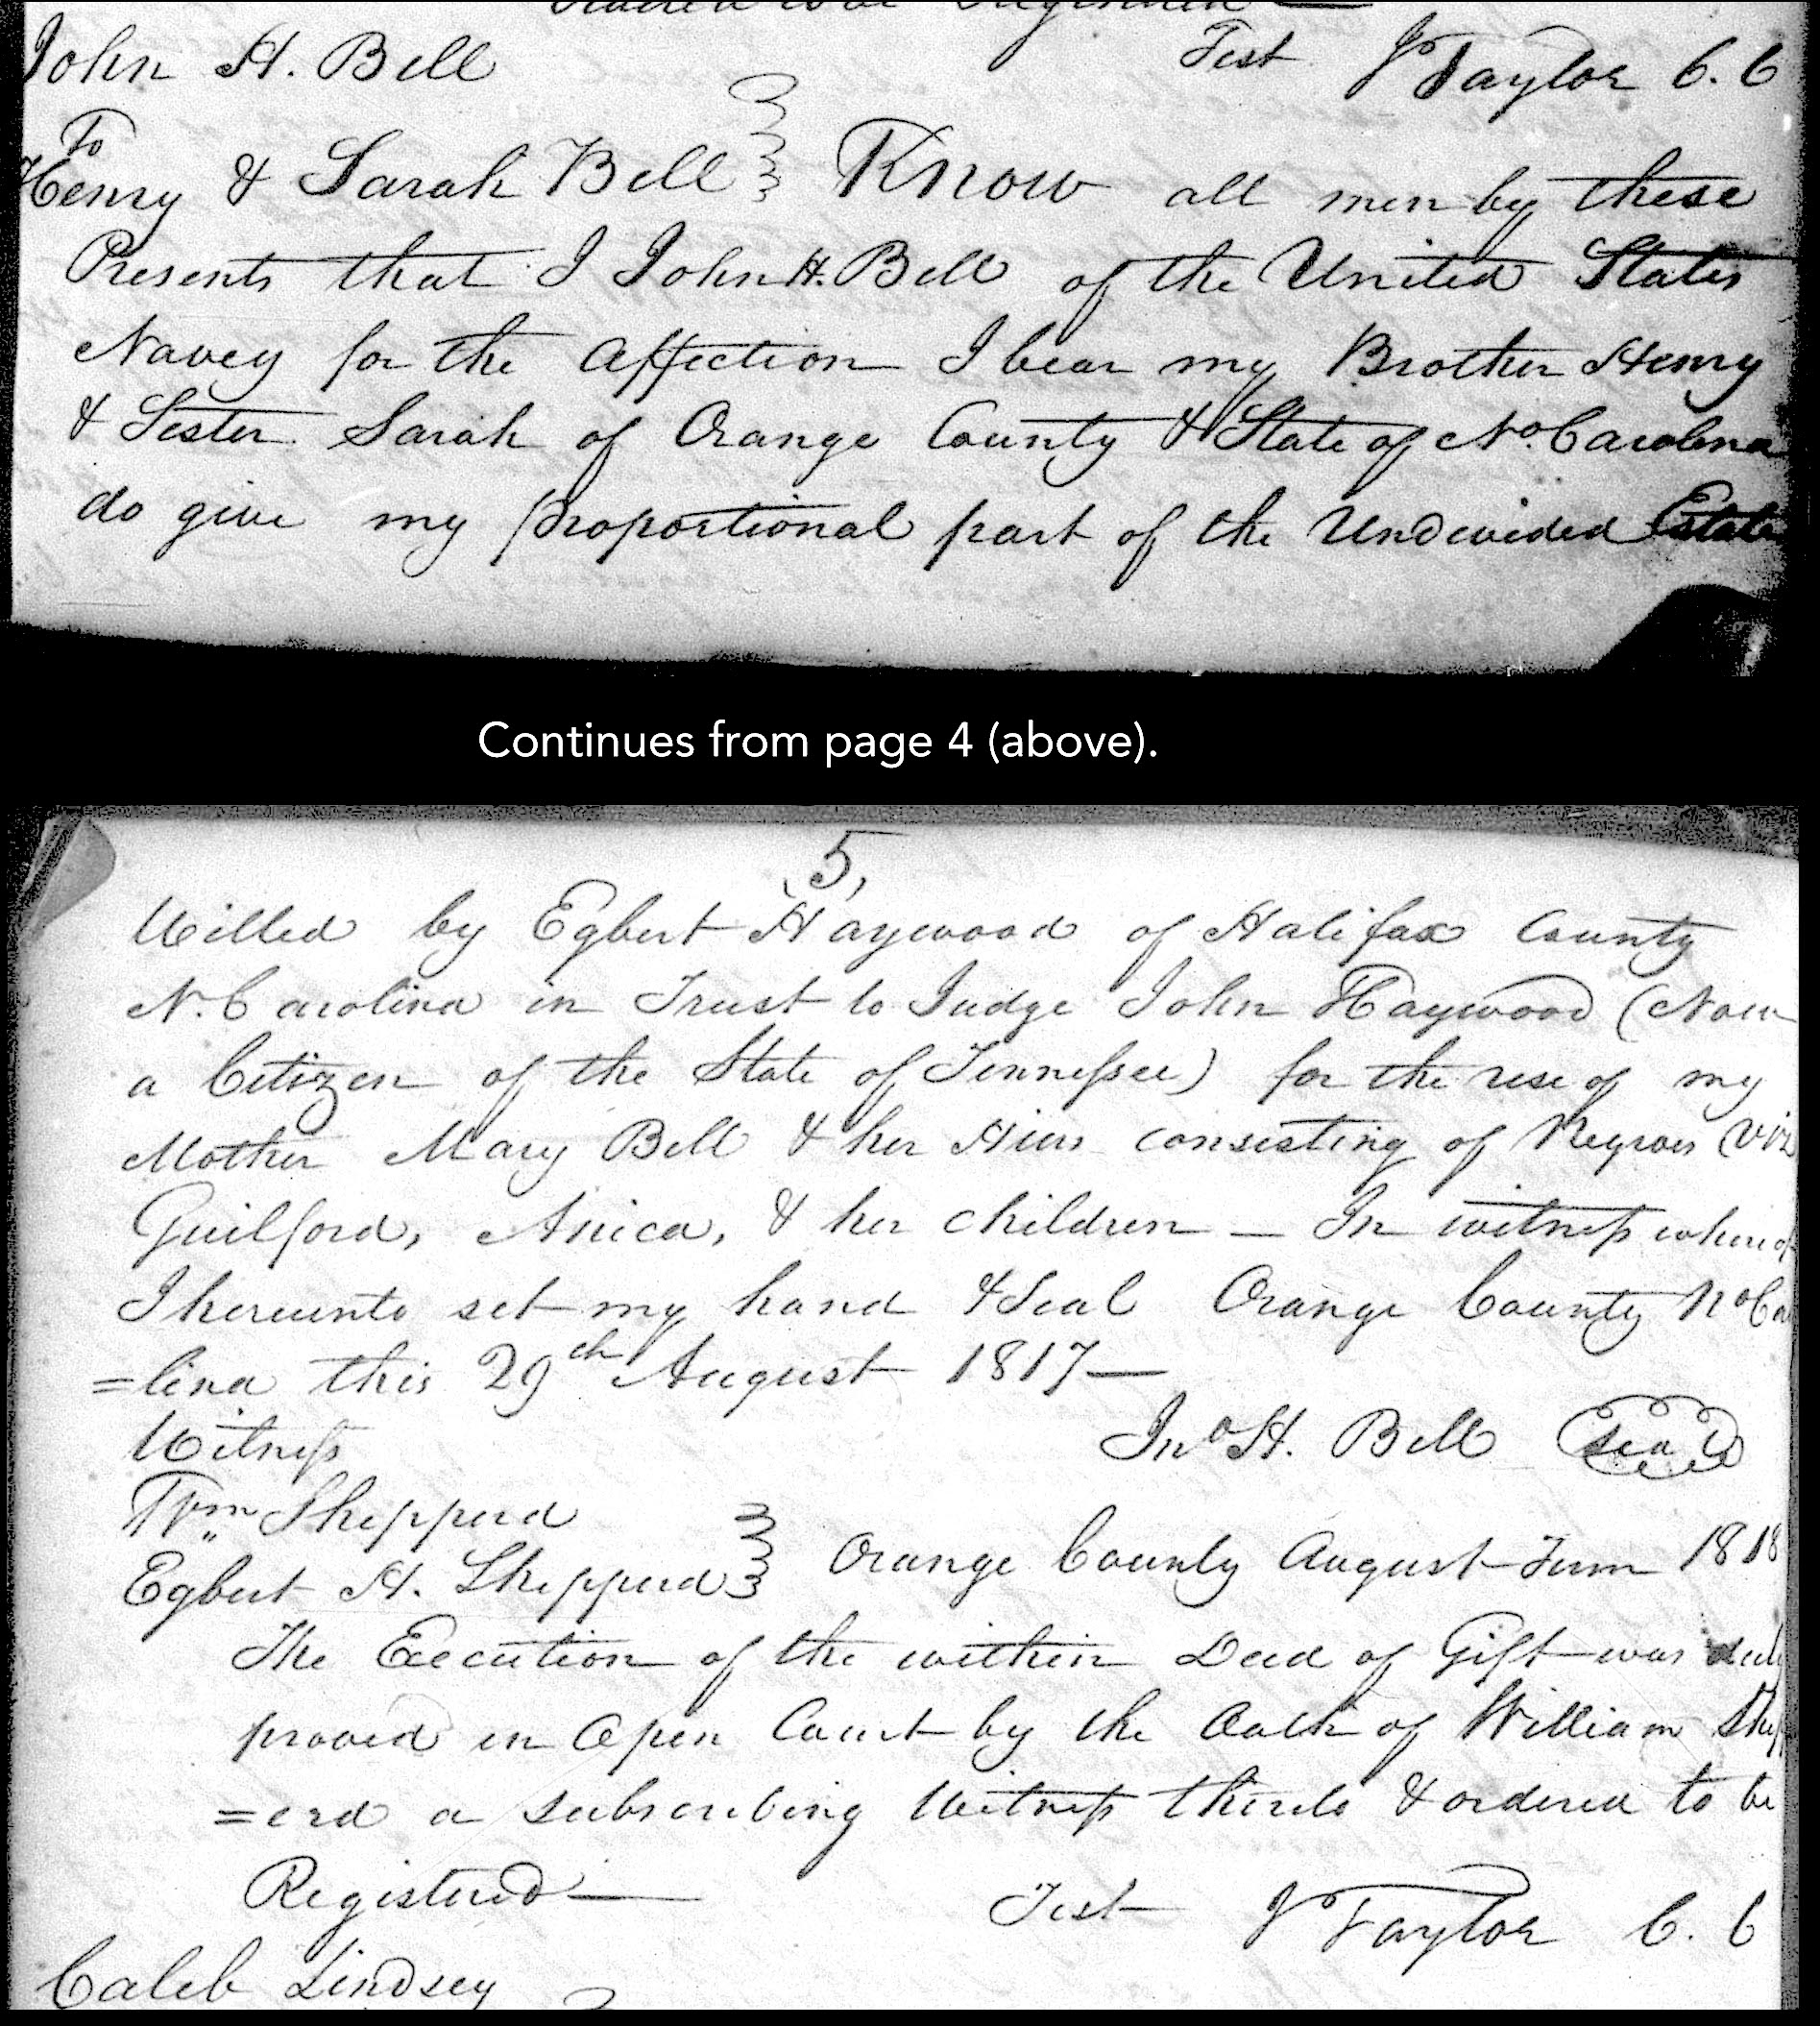 John H. Bell Test J Taylor C. C
To
Henry & Sarah Bell Know all men by these
Presents that I John H. Bell of the United States
Navey for the affection I bear my Brother Henry
& Sister Sarah of Orange County & State of No. Carolina
do give my proportional part of the Undevided Estate
Continues from page 4 (above).
5,
Willed by Egbert Haywood of Halifax County
N. Carolina in Trust to Judge John Haywood (Now
a Citizen of the State of Tennessee) for the use of my
Mother Mary Bell & her Hiers consisting of Negroes (viz
Guilford, Anica, & her children — In witness whereof
I hereunto set my hand & Seal Orange County No Ca
=lina this 29th August 1817—
Witness Jno H. Bell Seal
Wm Shepperd
Egbert H. Shepperd Orange County August Term 1818
The Execution of the within Deed of Gift was duly
proved in Open Court by the Oath of William Shepp
=erd a subscribing Witness thereto & ordered to be
Registered— Test J Taylor C. C
Caleb Lindsey